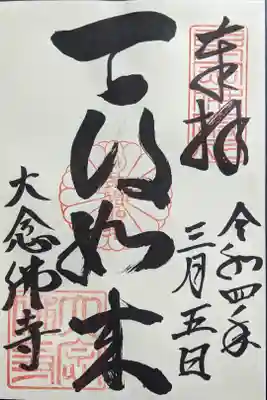 奉拝
令和四年
三月五日
天得如来
大念佛寺